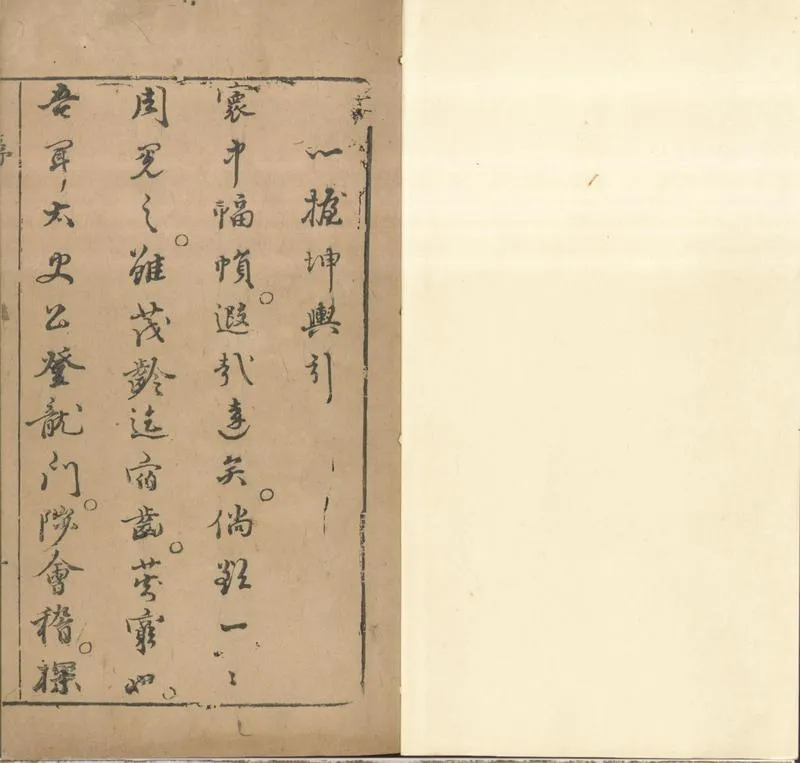 一握坤輿引
寰中幅幀。遐哉遠矣。倘欲一一
周覽之。雖茂齡迄宿齒。莫窮也。
吾聞太史公登龍門。陟會稽。探